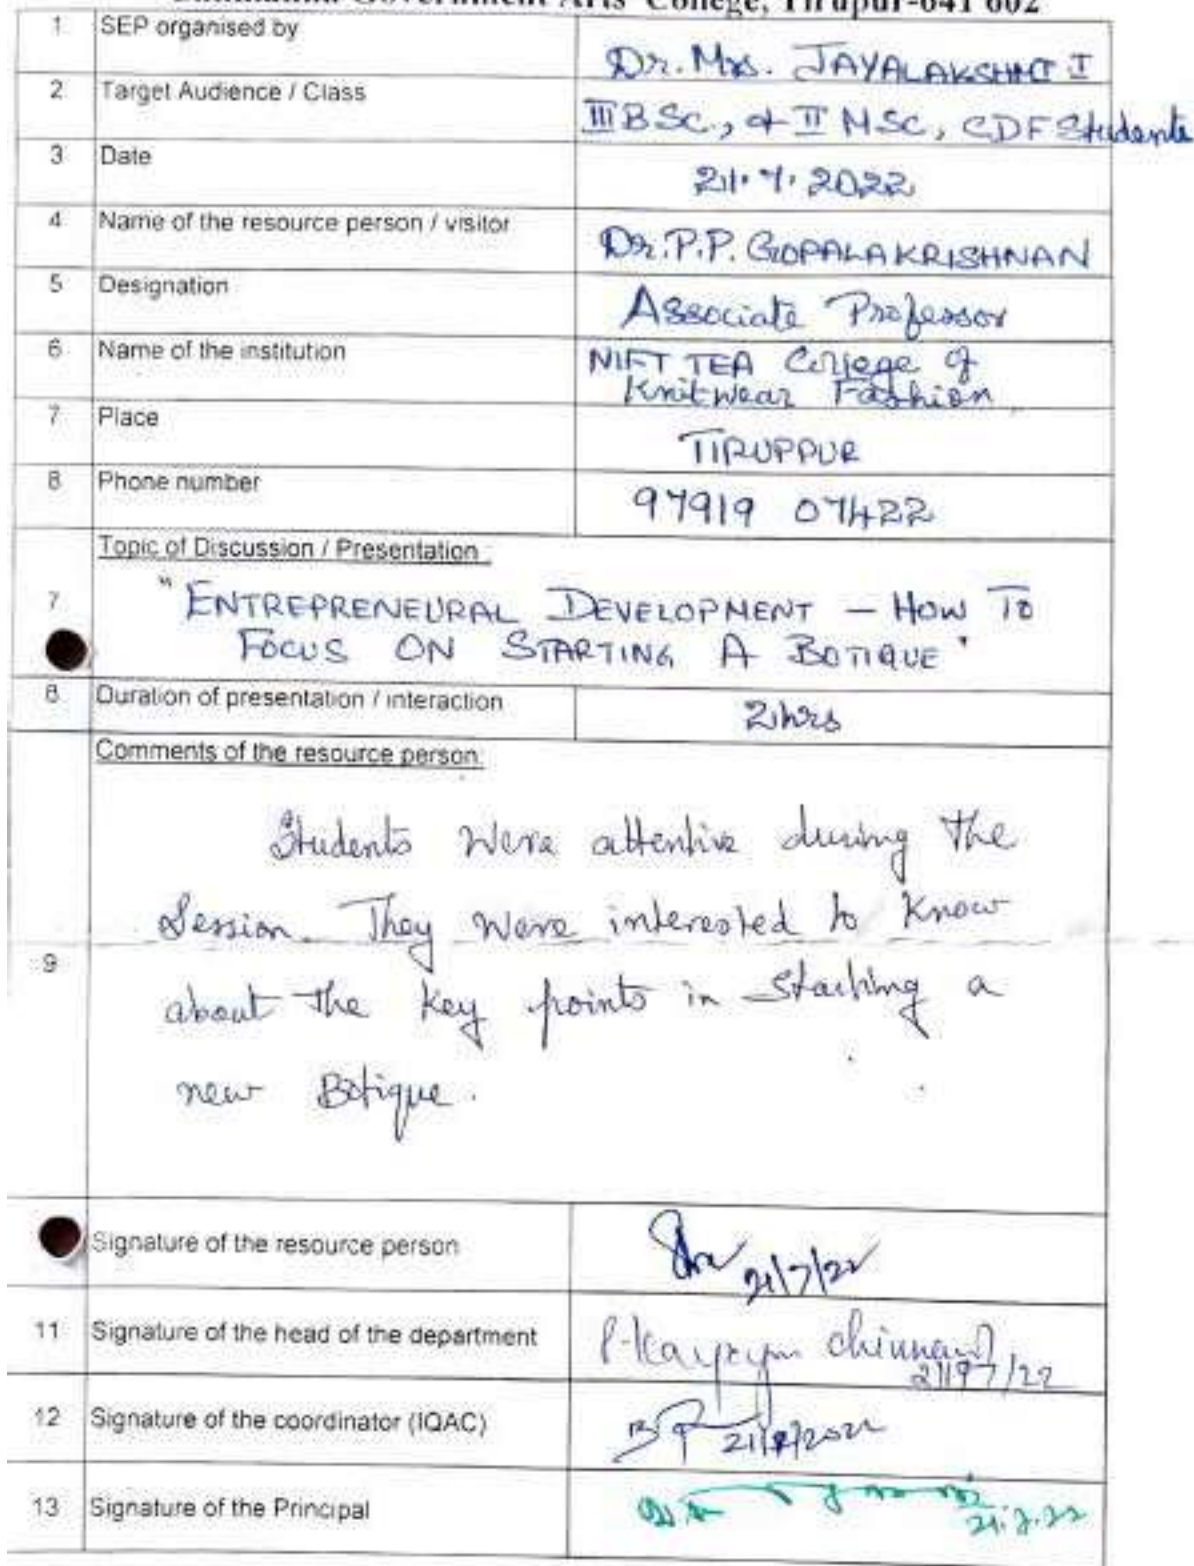 Government Arts College, Tirupur-641 602
1 SEP organised by Dr. Mrs. JAYALAKSHMI I
2 Target Audience / Class III BSc., & II MSC, CDF Students
3 Date 21.7.2022
4 Name of the resource person / visitor Dr. P.P. GOPALAKRISHNAN
5 Designation Associate Professor
6 Name of the institution NIFT TEA College of
Knitwear Fashion
7 Place TIRUPPUR
8 Phone number 97919 07422
Topic of Discussion / Presentation :
7 "ENTREPRENEURAL DEVELOPMENT – HOW TO
FOCUS ON STARTING A BOTIQUE"
8 Duration of presentation / interaction 2 hrs
Comments of the resource person:
Students were attentive during the
Session. They were interested to know
9
about the key points in starting a
new Botique.
Signature of the resource person 21/7/22
11 Signature of the head of the department 21/07/22
12 Signature of the coordinator (IQAC)
13 Signature of the Principal 21.7.22